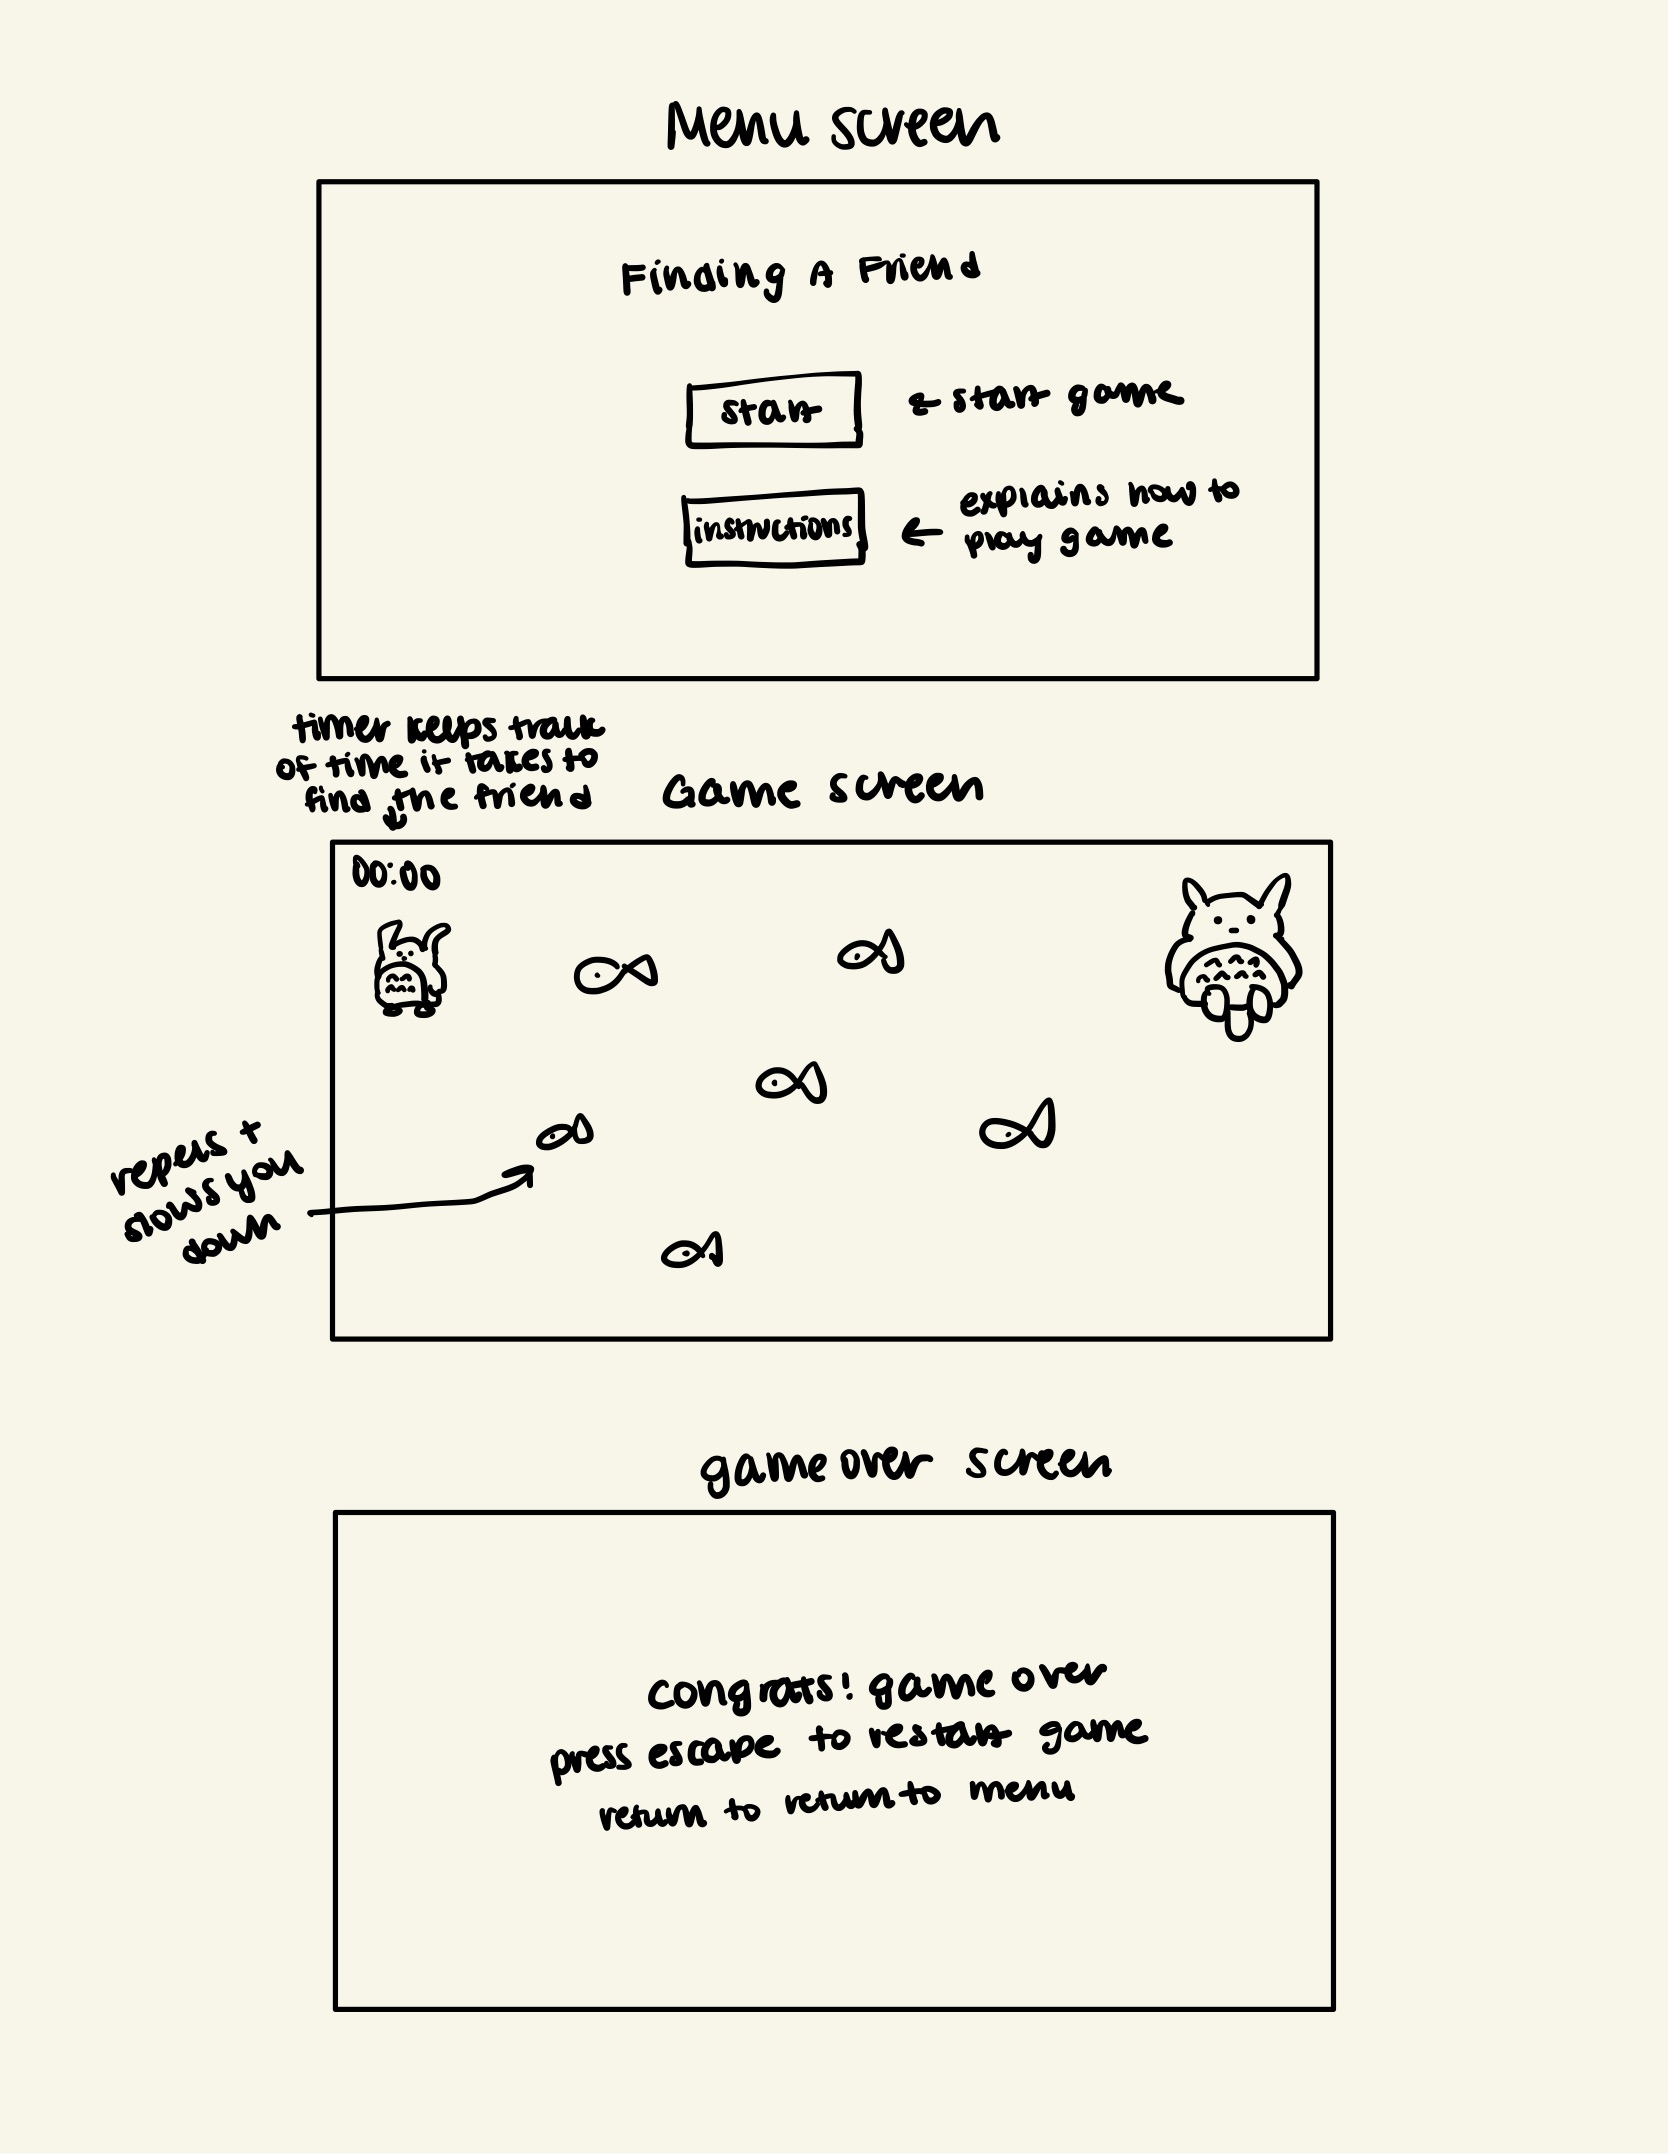 Menu screen
Finding A Friend
start
← start game
instructions
← explains how to
play game
timer keeps track
of time it takes to
find the friend
Game screen
00:00
repels +
slows you
down
game over screen
congrats! game over
press escape to restart game
return to return to menu